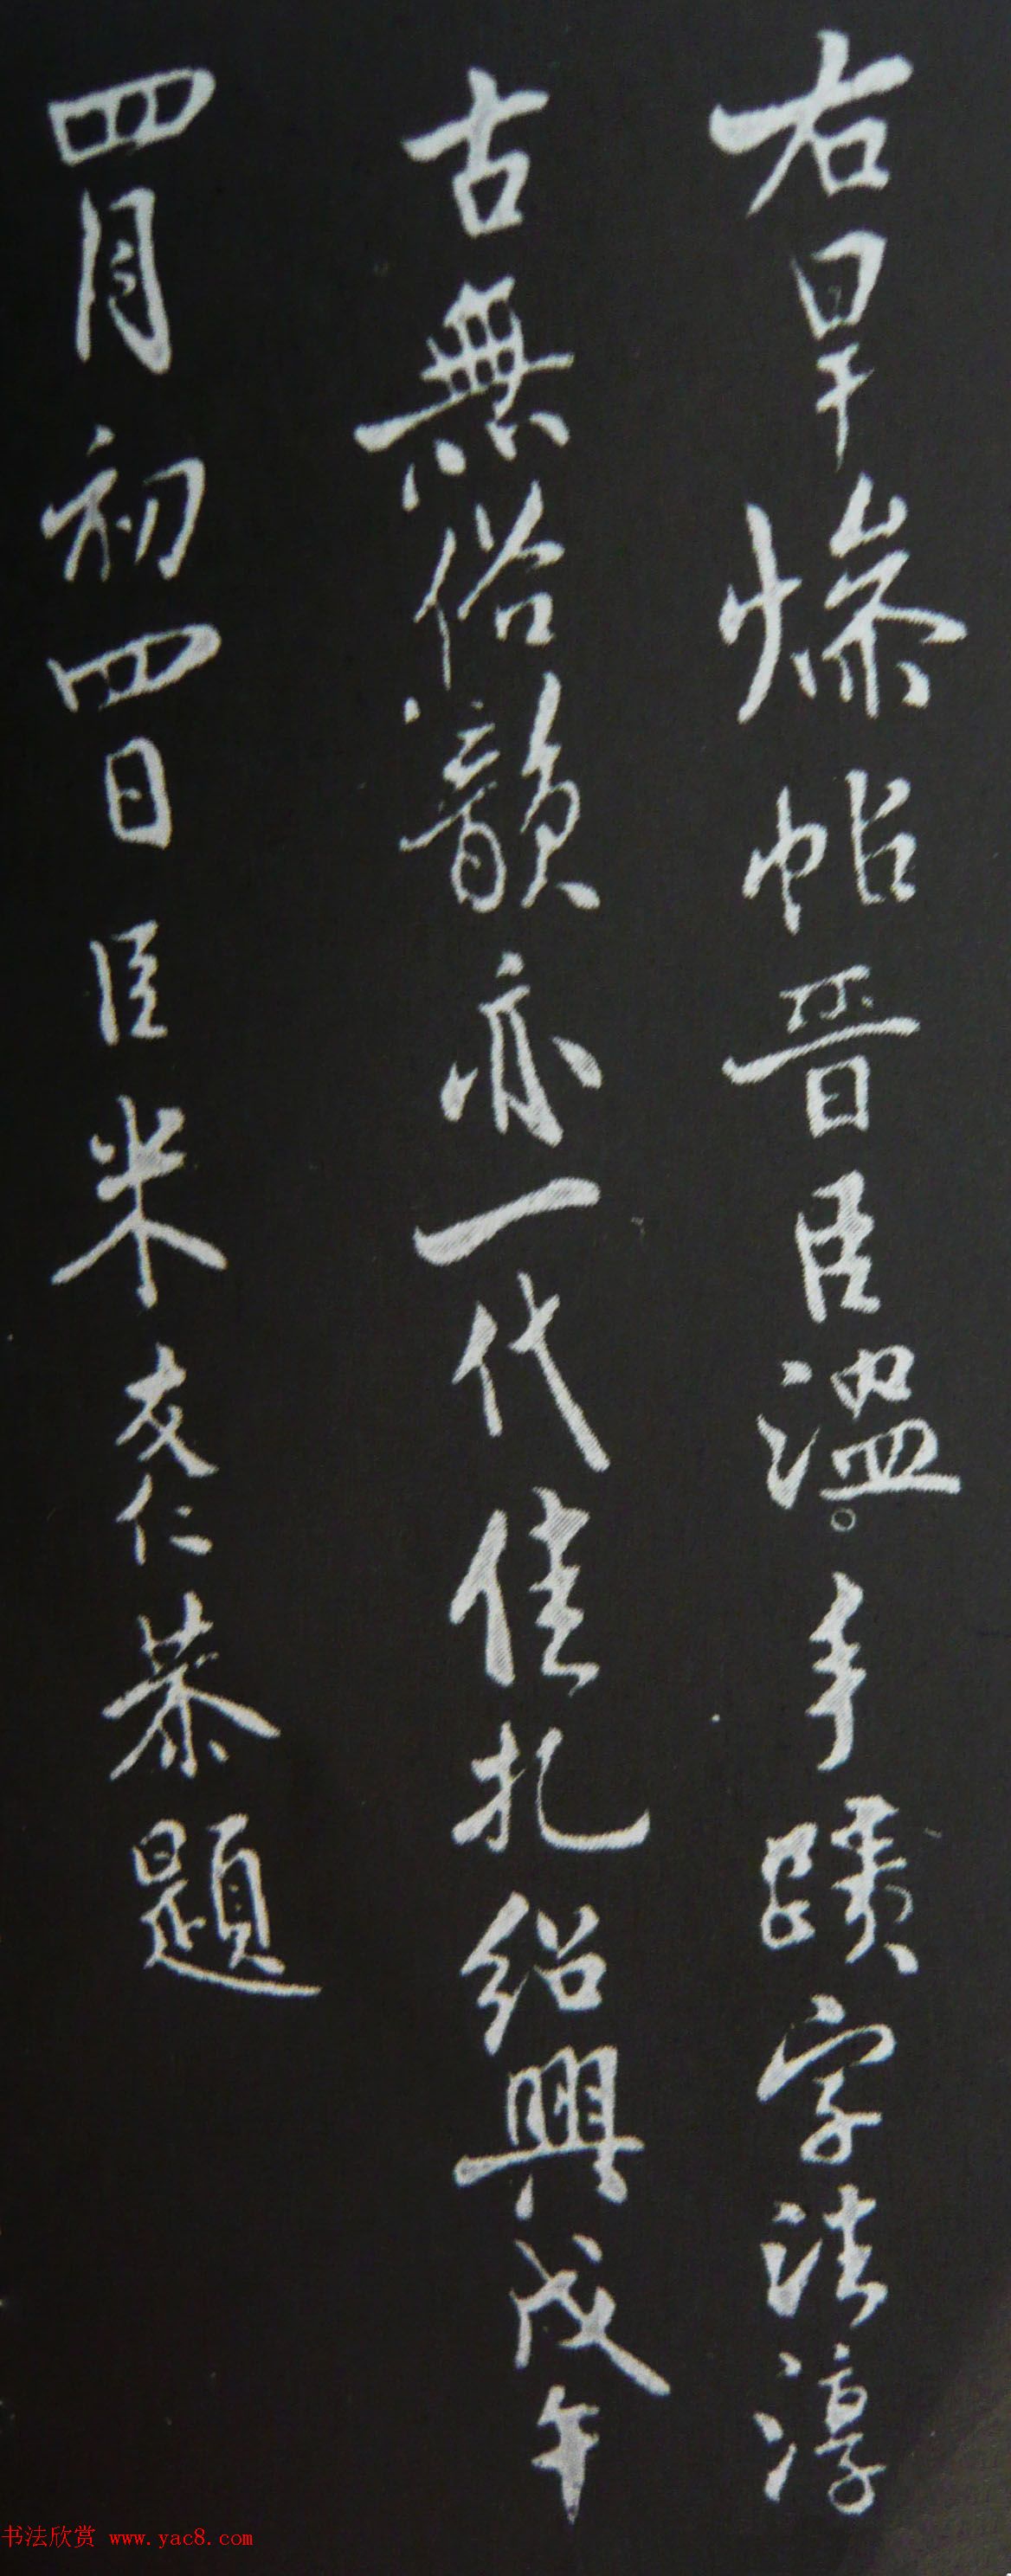 右旱燥帖晉臣溫手蹟字法淳
古無俗韻亦一代佳札紹興戊午
四月初四日臣米友仁恭題
书法欣赏 www.yac8.com